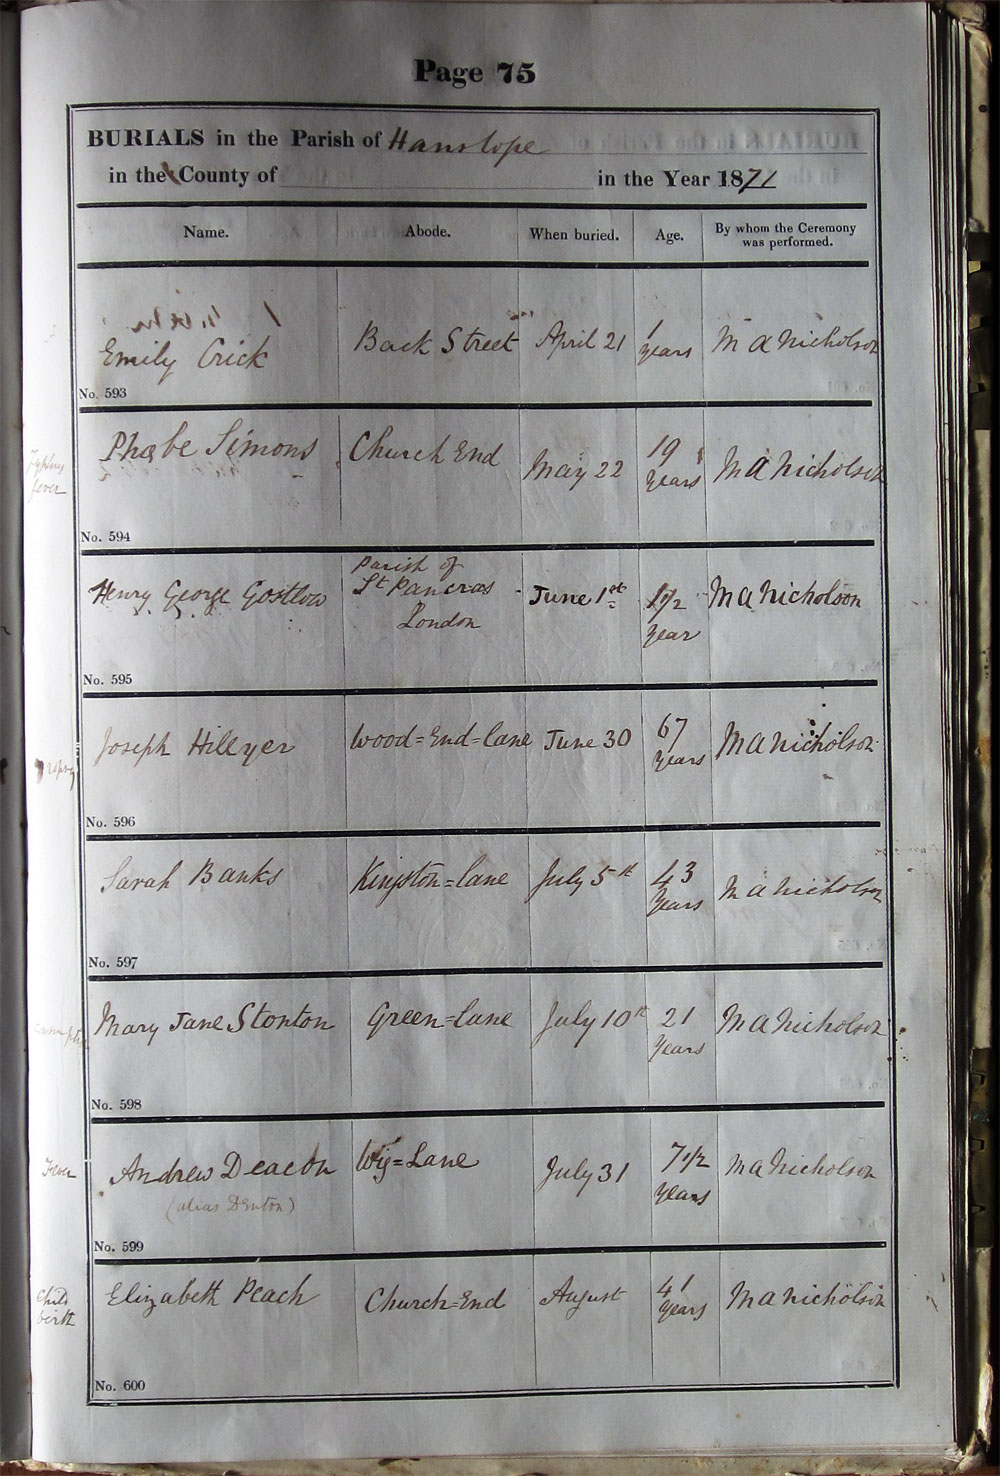 Page 75
BURIALS in the Parish of Hanslope
in the County of in the Year 1871
Name. Abode. When buried. Age. By whom the Ceremony
was performed.
Emily Crick Back Street April 21 1
years M A Nicholson
No. 593
Typhus
fever
Phœbe Simons Church End May 22 19
years M A Nicholson
No. 594
Henry George Gostlow Parish of
St Pancras
London June 1st 1/2
year M A Nicholson
No. 595
Joseph Hillyer Wood=End=Lane June 30 67
years M A Nicholson
No. 596
Sarah Banks Kingston=lane July 5th 43
years M A Nicholson
No. 597
Mary Jane Stonton Green=lane July 10th 21
years M A Nicholson
No. 598
Fever
Andrew Deacon Wig=Lane July 31 7 1/2
years M A Nicholson
(alias Denton)
No. 599
Child
birth
Elizabeth Peach Church=End August 41
years M A Nicholson
No. 600